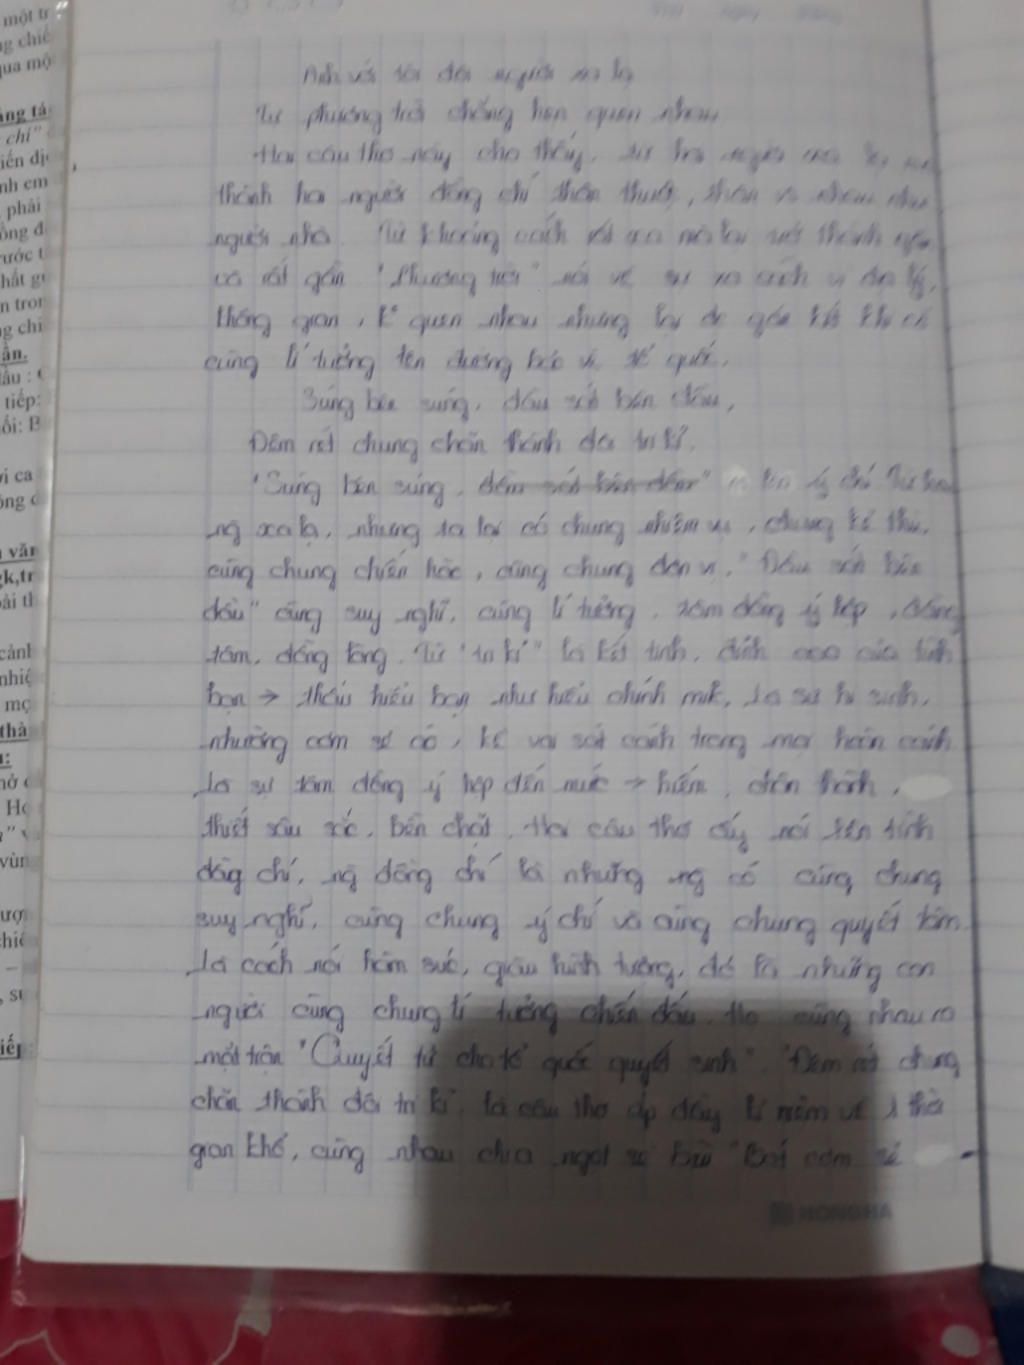 một tr
ng chiế
qua mộ
chí"
iến dị
nh em
phải
ồng đ
rước t
hất gi
n tron
g chi
ần.
ầu :
tiếp:
ối: B
ời ca
ông
văn
gk,tr
ài th
cảnh
nhiệ
mọ
thà
Họ
vùn
Anh với tôi đôi người xa lạ
Từ phương trời chẳng hẹn quen nhau
Hai câu thơ này cho thấy, từ hai người xa lạ
thành hai người đồng chí thân thuộc, thân nhau như
người nhà. Từ khoảng cách rất xa mà lại trở thành
có rất gần "Phương trời" nói về sự xa cách vị địa lý,
không gian, k quen nhau nhưng lại gắn kết khi có
cùng lí tưởng lên đường bảo vệ tổ quốc.
Súng bên súng, đầu sát bên đầu,
Đêm rét chung chăn thành đôi tri kỉ.
"Súng bên súng, ý chí
ng xa lạ, nhưng ta lại có chung nhiệm vụ, chung kẻ thù,
cùng chung chiến hào, cùng chung đơn vị. "Đầu sát bên
đầu" cùng suy nghĩ, cùng lí tưởng, tâm đồng ý hợp, đồng
tâm, đồng lòng. Từ "tri kỉ" là kết tinh, đỉnh cao của tình
bạn → thấu hiểu bạn như hiểu chính mik, là sự hi sinh,
nhường cơm sẻ áo, kề vai sát cánh trong mọi hoàn cảnh
là sự tâm đồng ý hợp đến mức → hiếm, chân thành,
thiết sâu sắc, bền chặt. Hai câu thơ ấy nói lên tình
đồng chí, ng đồng chí là những ng có cùng chung
suy nghĩ, cùng chung ý chí và cùng chung quyết tâm.
Là cách nói hàm súc, giàu hình tượng, đó là những con
người cùng chung lí tưởng chiến đấu. Họ cùng nhau ra
mặt trận "Quyết tử cho tổ quốc quyết sinh". "Đêm rét chung
chăn thành đôi tri kỉ" là câu thơ ắp đầy kỉ niệm về 1 thời
gian khổ, cùng nhau chia ngọt sẻ bùi "Bát cơm sẻ
HONGHA